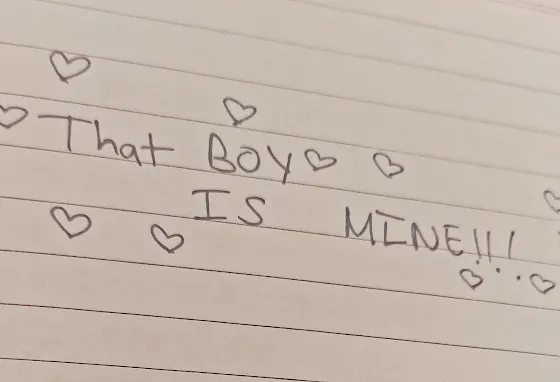 That BOY
IS MINE!!!